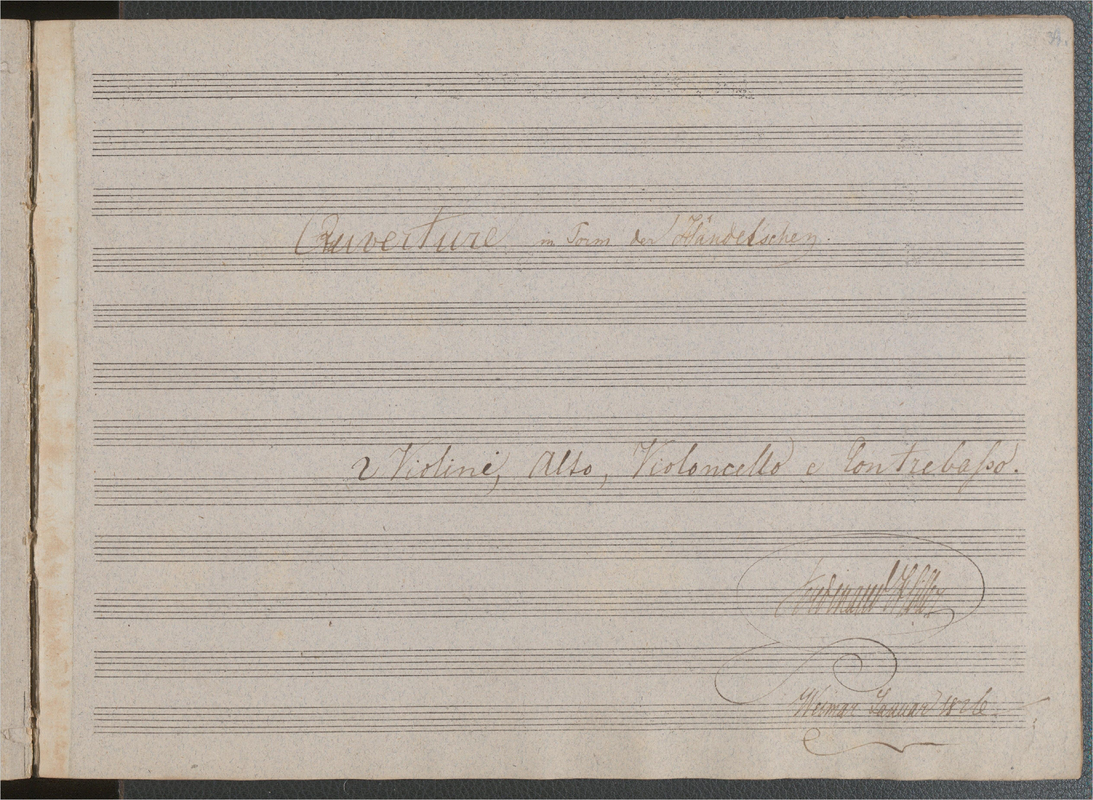 Ouverture in Form der Händel'schen.
2 Violini, Alto, Violoncello e Contrebaſso.
Ferdinand Hiller
Weimar Januar 1826.